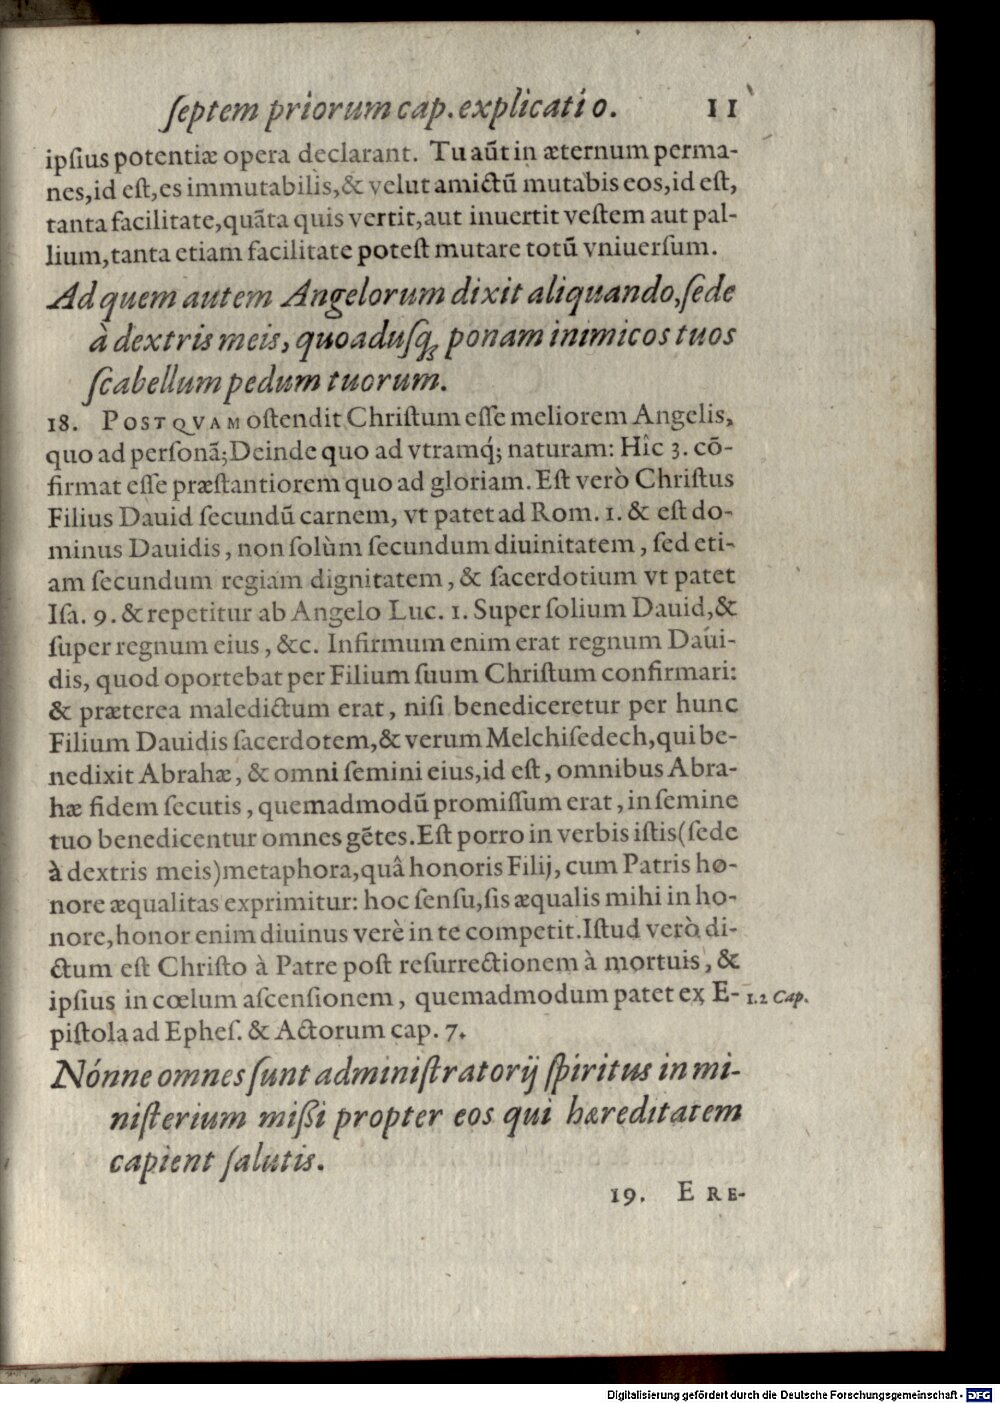 ſeptem priorum cap. explicatio. 11
ipſius potentiæ opera declarant. Tu aūt in æternum perma-
nes, id eſt, es immutabilis, & velut amictū mutabis eos, id eſt,
tanta facilitate, quāta quis vertit, aut inuertit veſtem aut pal-
lium, tanta etiam facilitate poteſt mutare totū vniuerſum.
Ad quem autem Angelorum dixit aliquando, ſede
à dextris meis, quoaduſq; ponam inimicos tuos
ſcabellum pedum tuorum.
18. POSTQVAM oſtendit Chriſtum eſſe meliorem Angelis,
quo ad perſonā; Deinde quo ad vtramq́; naturam: Hîc 3. cō-
firmat eſſe præſtantiorem quo ad gloriam. Eſt verò Chriſtus
Filius Dauid ſecundū carnem, vt patet ad Rom. 1. & eſt do-
minus Dauidis, non ſolùm ſecundum diuinitatem, ſed eti-
am ſecundum regiam dignitatem, & ſacerdotium vt patet
Iſa. 9. & repetitur ab Angelo Luc. 1. Super ſolium Dauid, &
ſuper regnum eius, &c. Infirmum enim erat regnum Daui-
dis, quod oportebat per Filium ſuum Chriſtum confirmari:
& præterea maledictum erat, niſi benediceretur per hunc
Filium Dauidis ſacerdotem, & verum Melchiſedech, qui be-
nedixit Abrahæ, & omni ſemini eius, id eſt, omnibus Abra-
hæ fidem ſecutis, quemadmodū promiſſum erat, in ſemine
tuo benedicentur omnes gētes. Eſt porro in verbis iſtis (ſede
à dextris meis) metaphora, quâ honoris Filij, cum Patris ho-
nore æqualitas exprimitur: hoc ſenſu, ſis æqualis mihi in ho-
nore, honor enim diuinus verè in te competit. Iſtud verò di-
ctum eſt Chriſto à Patre poſt reſurrectionem à mortuis, &
ipſius in cœlum aſcenſionem, quemadmodum patet ex E- 1.2 Cap.
piſtola ad Epheſ. & Actorum cap. 7.
Nónne omnes ſunt adminiſtratorij ſpiritus in mi-
niſterium miſſi propter eos qui hæreditatem
capient ſalutis.
19. ERE-
Digitalisierung gefördert durch die Deutsche Forschungsgemeinschaft - DFG